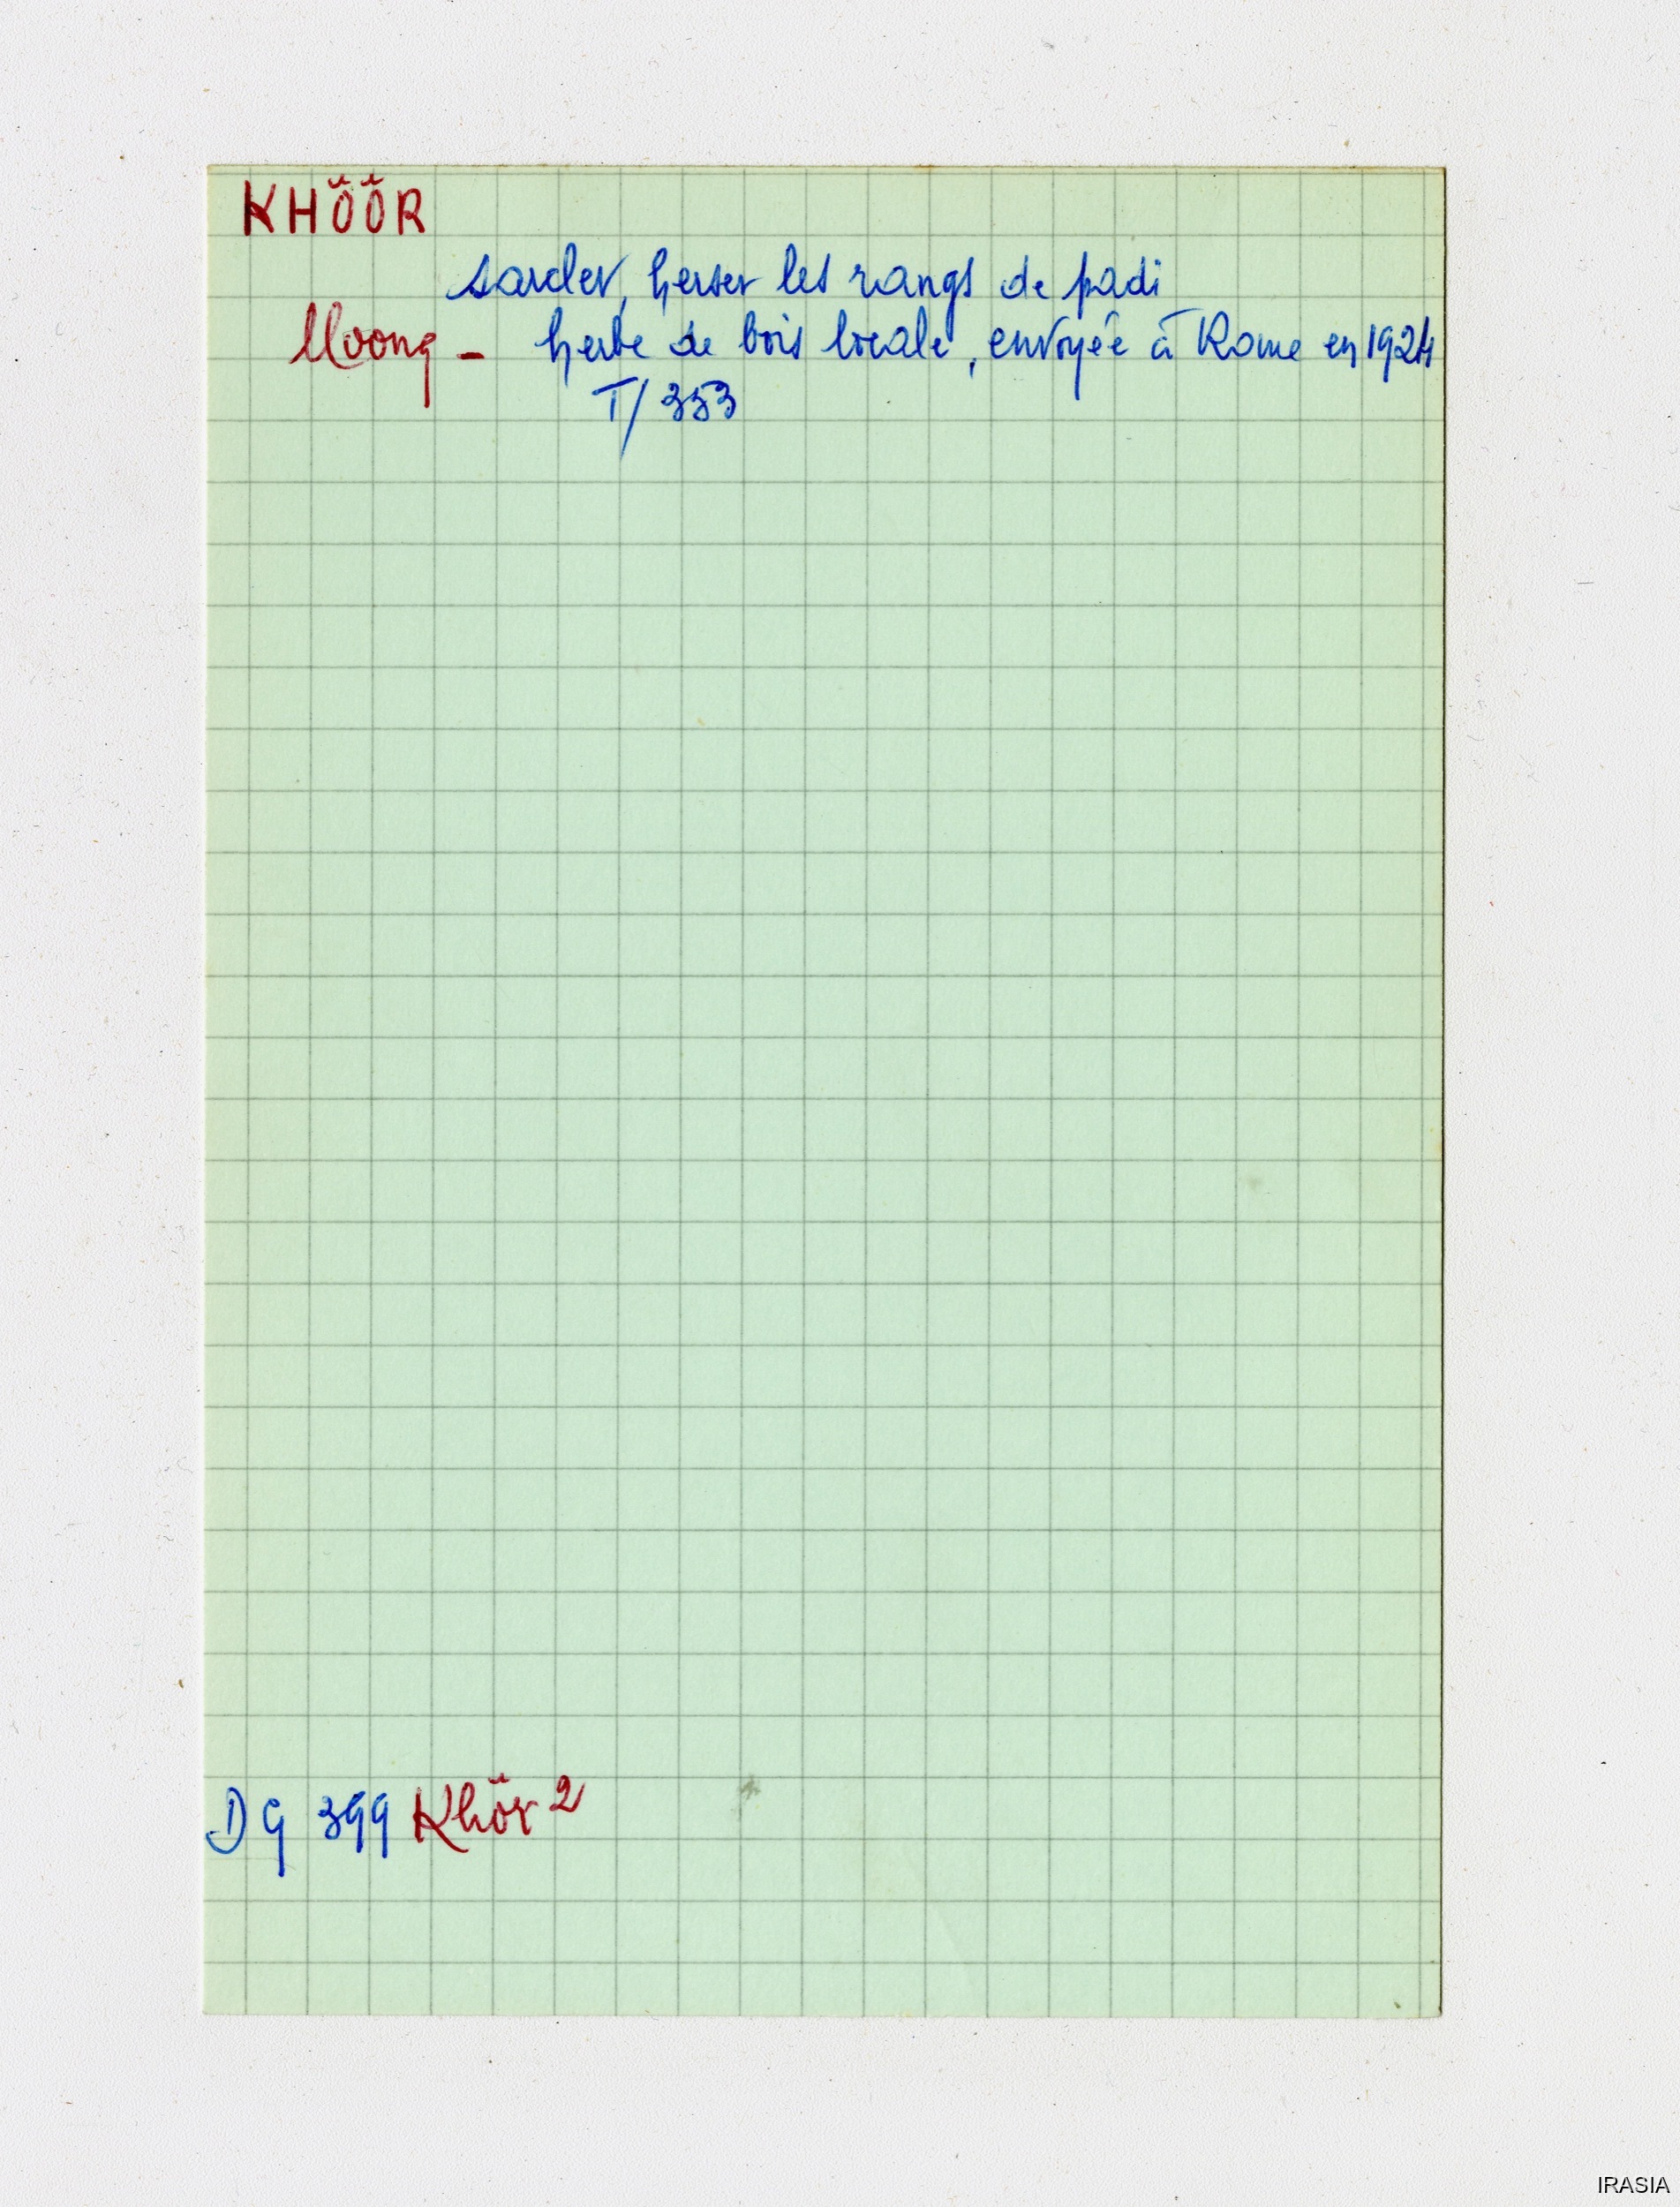 KHÖ̆Ö̆R
sarcler, herser les rangs de padi
Moong - herbe de bois locale, envoyée à Rome en 1924
T/353
DG 399 Khö̆r 2
IRASIA